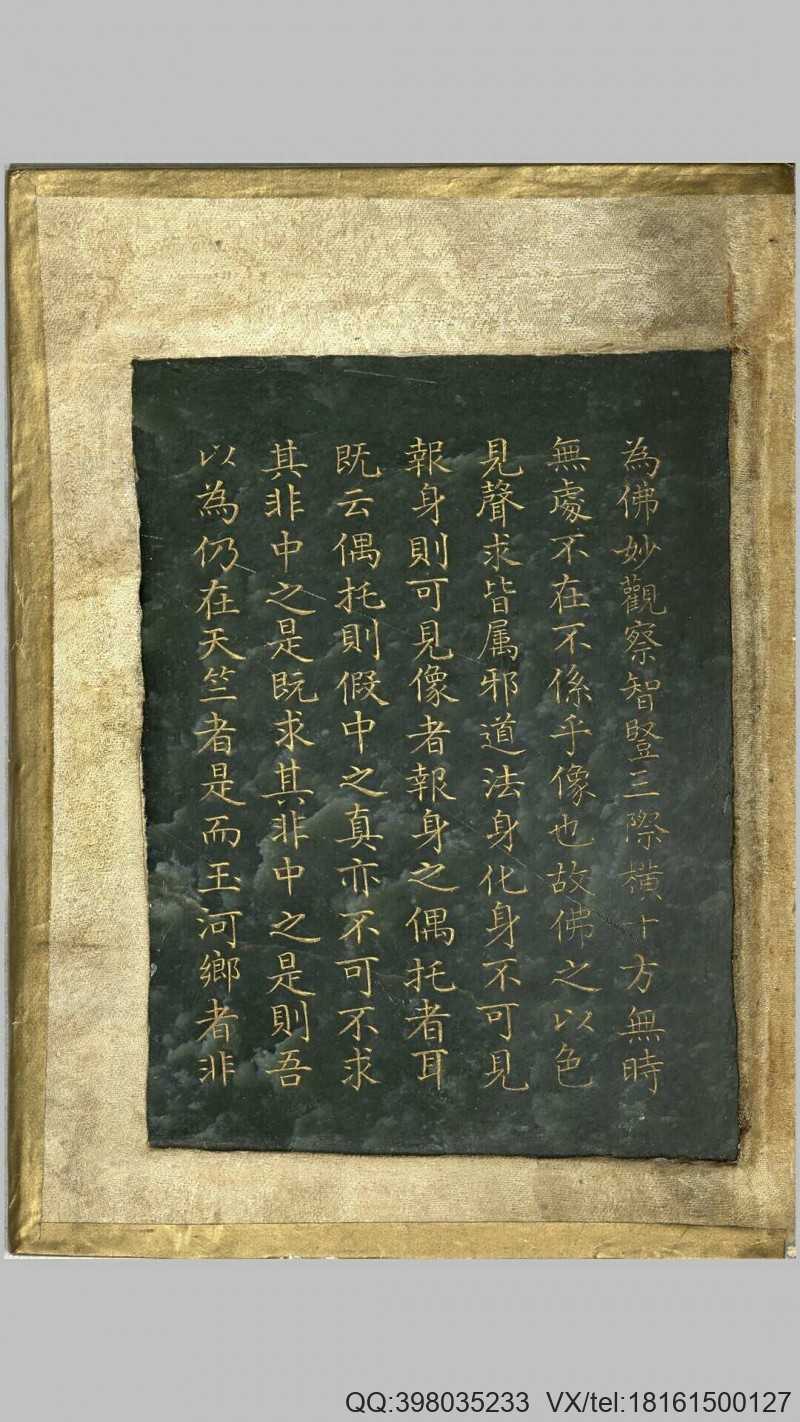 為佛妙觀察智豎三際橫十方無時
無處不在不係乎像也故佛之以色
見聲求皆属邪道法身化身不可見
報身則可見像者報身之偶托者耳
既云偶托則假中之真亦不可不求
其非中之是既求其非中之是則吾
以為仍在天竺者是而玉河鄉者非
QQ:398035233 VX/tel:18161500127